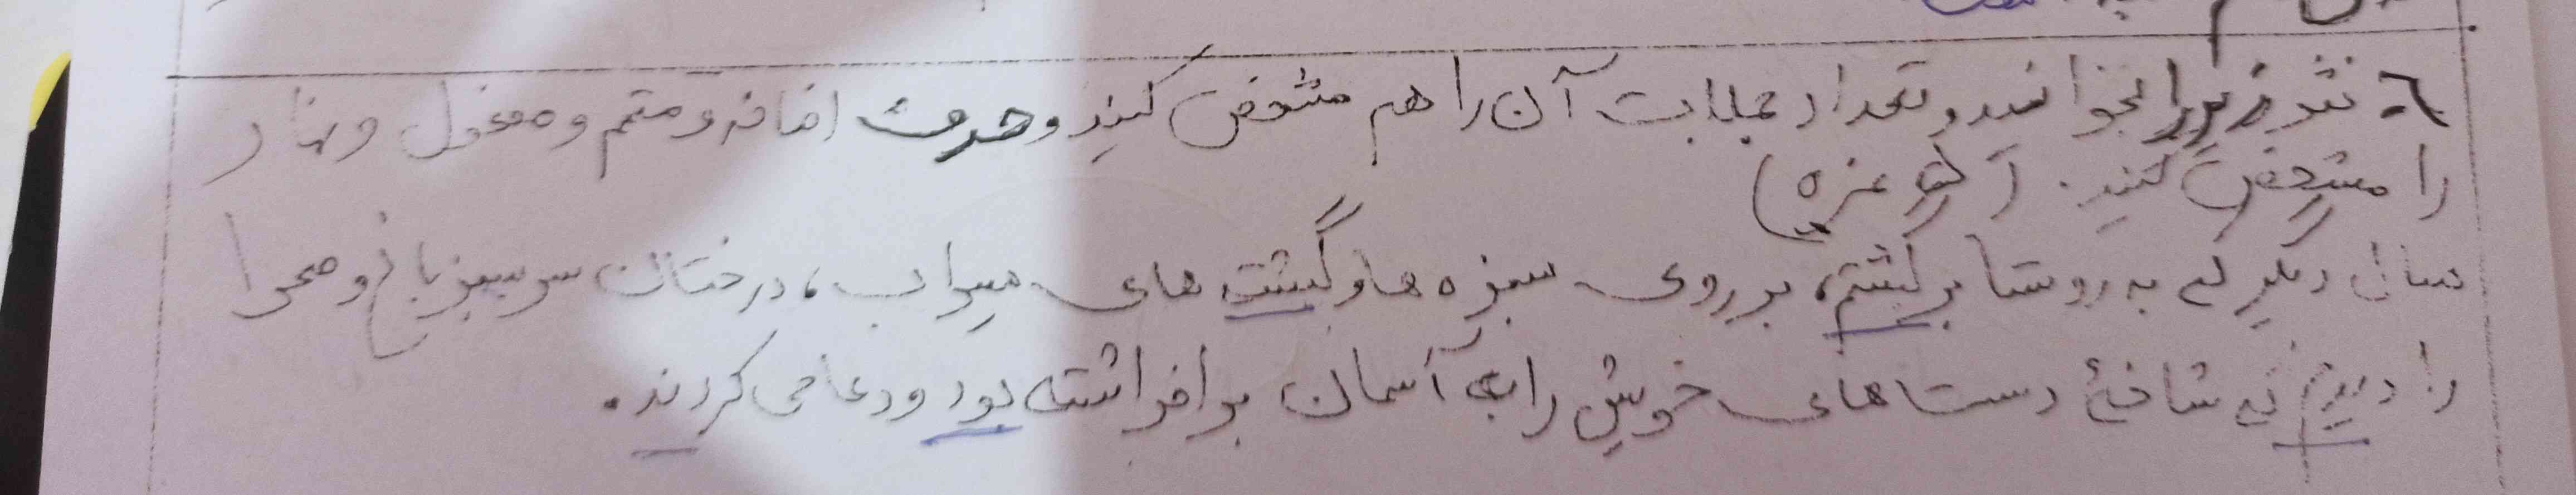 ٦- نثر زیر را بخوانید و تعداد جملات آن را هم مشخص کنید و حرف اضافه و متمم و مفعول و نهاد
را مشخص کنید. ( نمره)
سال دیگر که به روستا برگشتم، بر روی سبزه ها و گشت های سیراب، درختان سرسبز باغ و صحرا
را دیدم که شاخهٔ دست های خویش را به آسمان برافراشته بود و دعا می کردند.